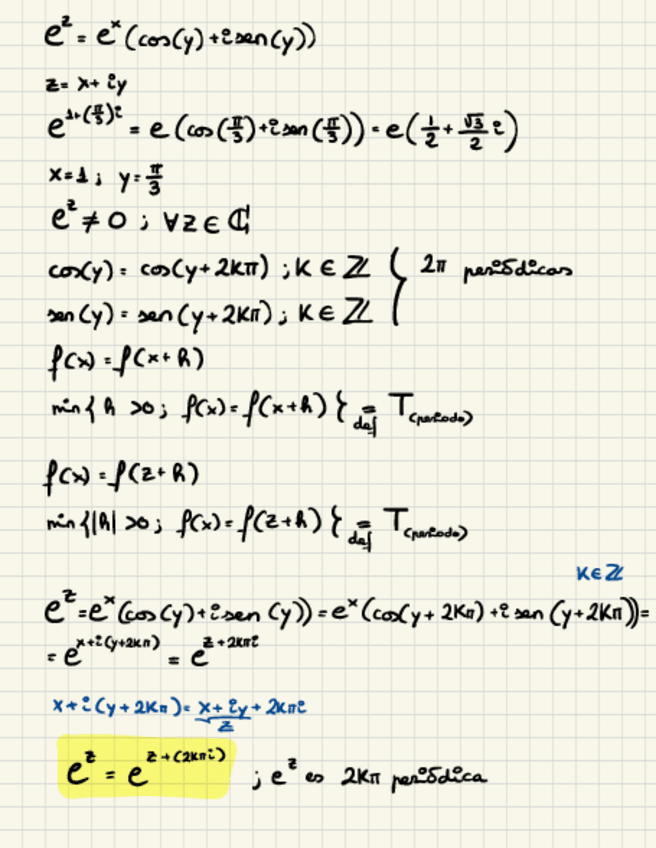 e^z = e^x (cos(y) + i sen(y))
z = x + iy
e^{1+(π/3)i} = e (cos(π/3) + i sen(π/3)) = e(1/2 + √3/2 i)
x = 1 ; y = π/3
e^z ≠ 0 ; ∀ z ∈ ℂ
cos(y) = cos(y + 2Kπ) ; K ∈ ℤ { 2π periódicas
sen(y) = sen(y + 2Kπ) ; K ∈ ℤ
f(x) = f(x + h)
min{ h > 0 ; f(x) = f(x + h) } =_{def} T_{(periodo)}
f(x) = f(z + h)
min{ |h| > 0 ; f(x) = f(z + h) } =_{def} T_{(periodo)}
K ∈ ℤ
e^z = e^x (cos(y) + i sen(y)) = e^x (cos(y + 2Kπ) + i sen(y + 2Kπ)) =
= e^{x+i(y+2Kπ)} = e^{z+2Kπi}
x + i(y + 2Kπ) = x + iy + 2Kπi
z
e^z = e^{z+(2Kπi)} ; e^z es 2Kπ periódica